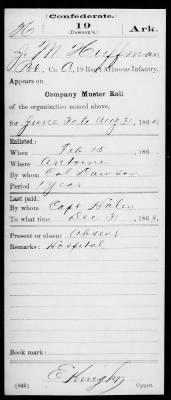 Confederate.
H 19 Ark.
(Dawson's.)
J. M. Huffman
Pvt., Co. A, 19 Reg't Arkansas Infantry.
Appears on
Company Muster Roll
of the organization named above,
for June 30 to Aug 31, 186
Enlisted:
When Feb 13, 186
Where Antoine
By whom Col Dawson
Period 1 year
Last paid:
By whom Capt
To what time Dec 31, 186
Present or absent Absent
Remarks: Hospital
Book mark:
(642) E Knight
Copyist.